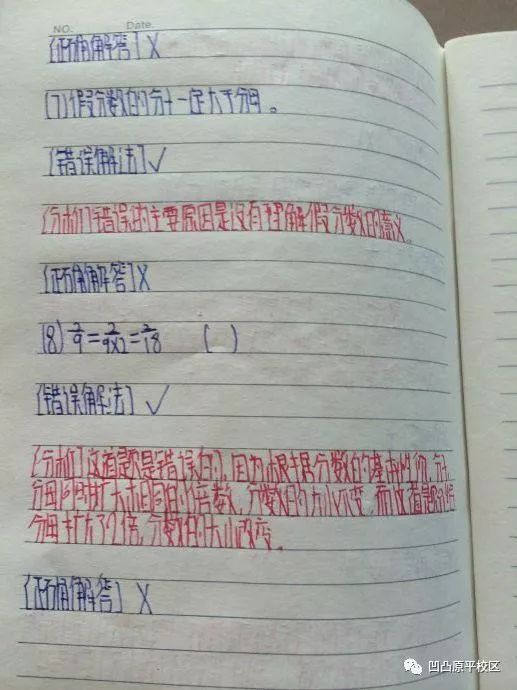 NO. Date.
[正确解答] X
(7)假分数的分子一定大于分母。
[错误解法] ✓
[分析]错误的主要原因是没有理解假分数的意义。
[正确解答] X
(8) 2/9 = 2/9×2 = 2/18 ( )
[错误解法] ✓
[分析]这道题是错误的,因为根据分数的基本性质,分子
分母同时扩大相同的倍数,分数的大小不变,而这道题只给
分母扩大了2倍,分数的大小改变。
[正确解答] X
凹凸原平校区